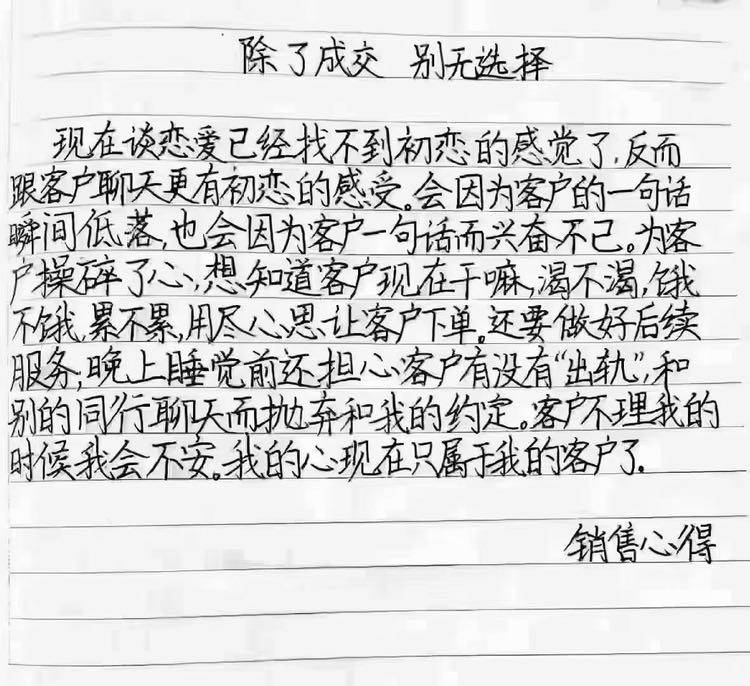 除了成交 别无选择
现在谈恋爱已经找不到初恋的感觉了,反而
跟客户聊天更有初恋的感受。会因为客户的一句话
瞬间低落,也会因为客户一句话而兴奋不已。为客
户操碎了心,想知道客户现在干嘛,渴不渴,饿
不饿,累不累,用尽心思让客户下单。还要做好后续
服务,晚上睡觉前还担心客户有没有“出轨”,和
别的同行聊天而抛弃和我的约定。客户不理我的
时候我会不安。我的心现在只属于我的客户了.
销售心得